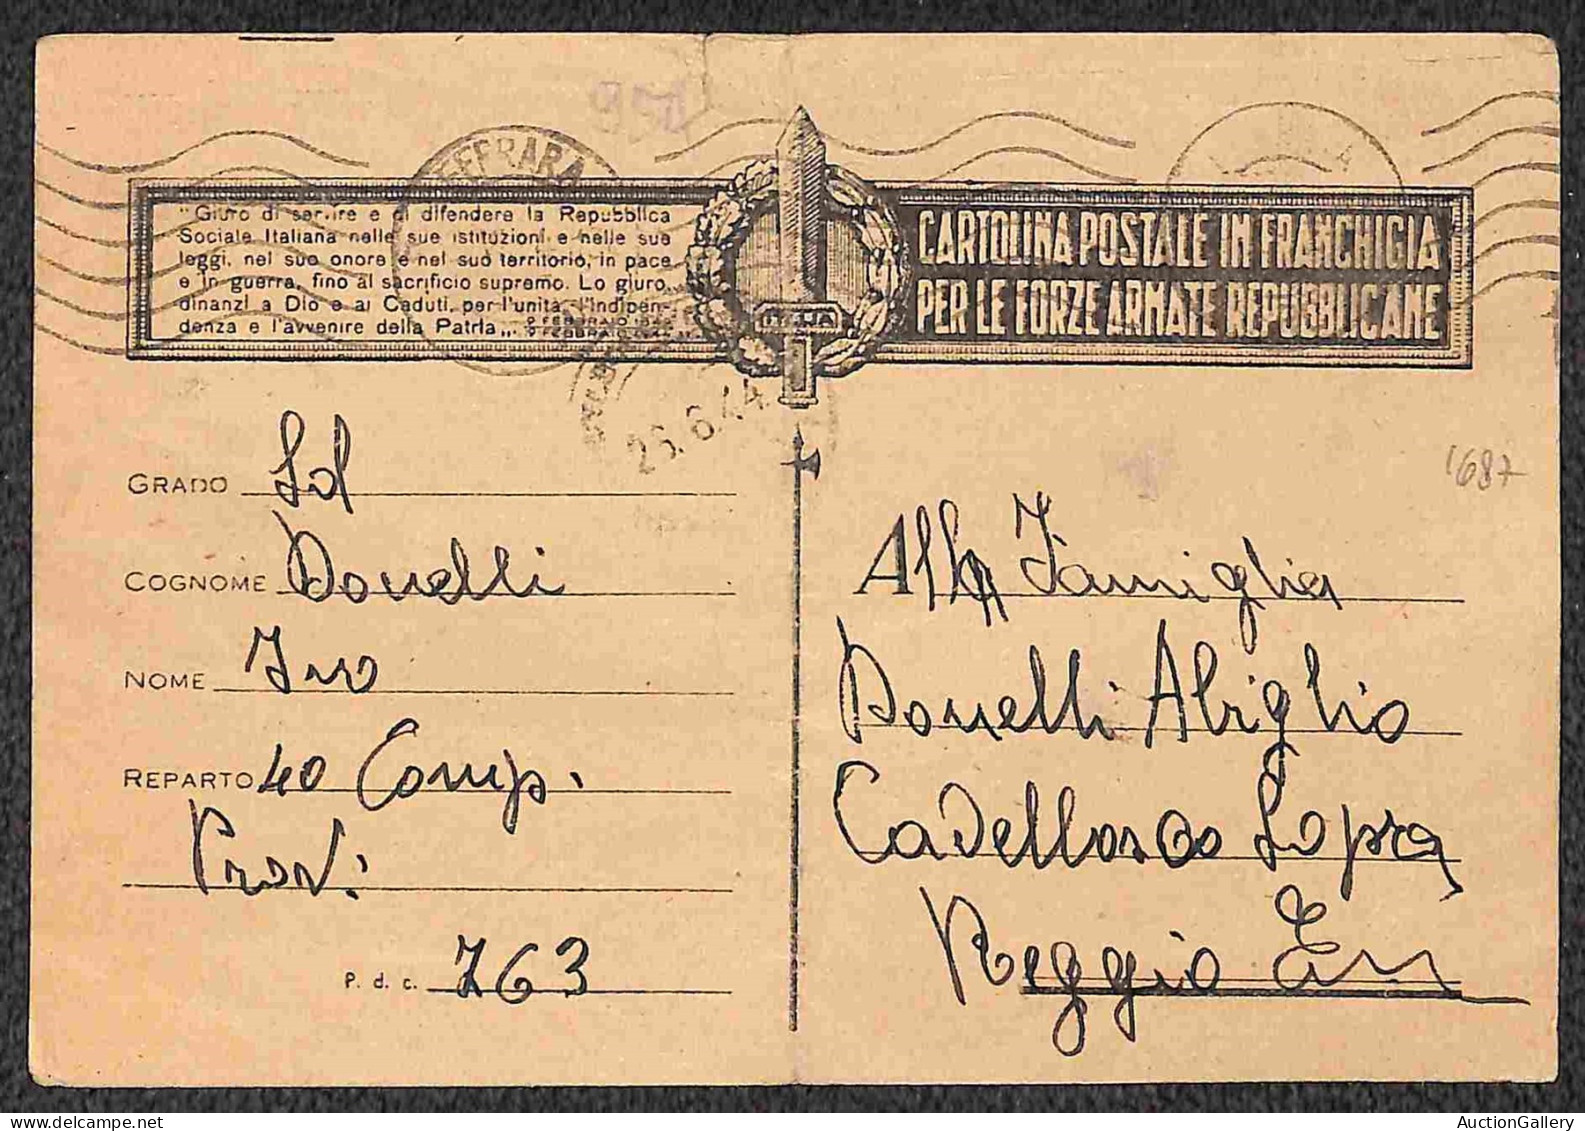 "Giuro di servire e di difendere la Repubblica
Sociale Italiana nelle sue istituzioni e nelle sue
leggi, nel suo onore e nel suo territorio, in pace
e in guerra, fino al sacrificio supremo. Lo giuro,
dinanzi a Dio e ai Caduti, per l'unità, l'indipen-
denza e l'avvenire della Patria„.
9 FEBBRAIO 1944
CARTOLINA POSTALE IN FRANCHIGIA
PER LE FORZE ARMATE REPUBBLICANE
FERRARA
25.6.44
1687
GRADO Sol
COGNOME Donelli
NOME Ivo
REPARTO 40 Comp.
Prov.
P. d. c. 763
Alla Famiglia
Donelli Abiglio
Cadelbosco Sopra
Reggio Em
AuctionGallery